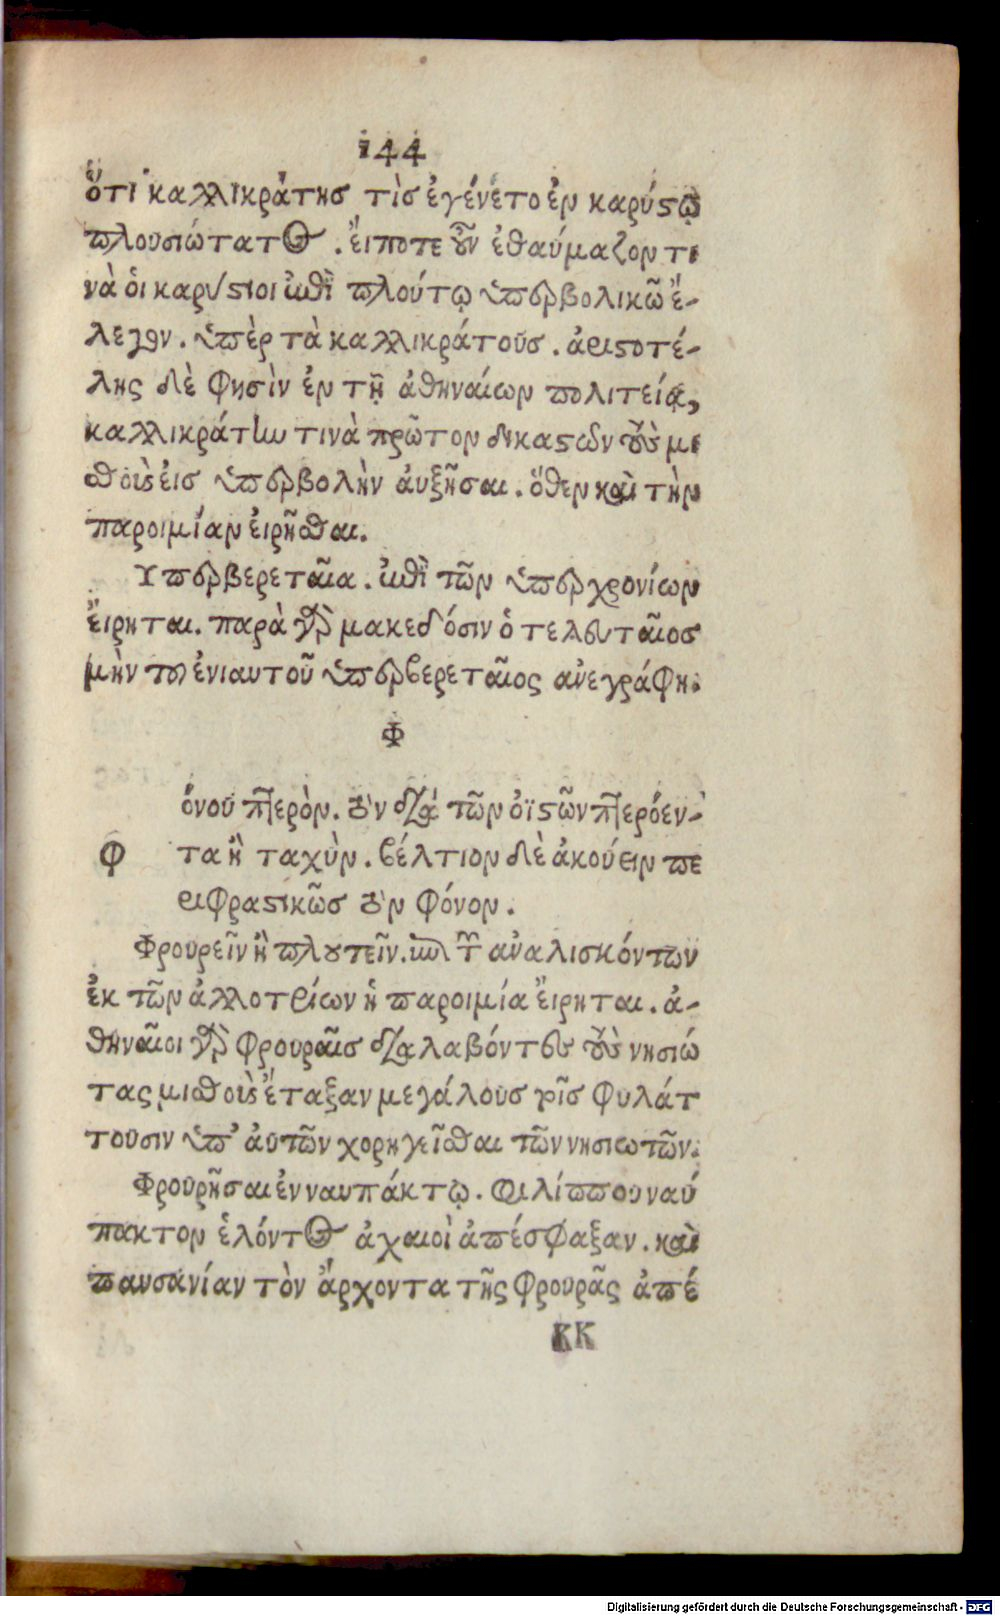 144
ὅτι καλλικράτησ τὶσ ἐγένετο ἐν καρύστῳ
πλουσιώτατος. ἔιποτε οὖν ἐθαύμαζον τι
νὰ ὁι καρύστιοι ἐπὶ πλούτῳ ὑπερβολικῶ ἔ-
λεγον. ὑπὲρ τὰ καλλικράτουσ. ἀριστοτέ-
λης δὲ φησὶν ἐν τῇ ἀθηναίων πολιτείᾳ,
καλλικράτην τινὰ πρῶτον δικαστῶν τοὺς μι
σθοὺς ἐισ ὑπερβολὴν ἀυξῆσαι. ὅθεν καὶ τὴν
παροιμίαν ἐιρῆσθαι.
Υπερβερεταῖα. ἐπὶ τῶν ὑπερχρονίων
ἔιρηται. παρὰ γὰρ μακεδόσιν ὁ τελευταῖοσ
μὴν τοῦ ἐνιαυτοῦ ὑπερβερεταῖος ἀνεγράφη.
Φ
όνου πτερὸν. τὸν διὰ τῶν ὀϊστῶν πτερόεν-
φ
τα ἢ ταχὺν. βέλτιον δὲ ἀκούειν πε
ριφραστικῶσ τὸν φόνον.
Φρουρεῖν ἢ πλουτεῖν. ἐπὶ τῶν ἀναλισκόντων
ἐκ τῶν ἀλλοτρίων ἡ παροιμία ἔιρηται. ἀ-
θηναῖοι γὰρ φρουραῖσ διαλαβόντες τοὺς νησιώ
τας μισθοὺς ἔταξαν μεγάλουσ τοῖσ φυλάτ
τουσιν ὑπ' ἀυτῶν χορηγεῖσθαι τῶν νησιωτῶν.
Φρουρῆσαι ἐν ναυπάκτῳ. Φιλίππου ναύ
πακτον ἑλόντος ἀχαιοὶ ἀπέσφαξαν. καὶ
παυσανίαν τὸν ἄρχοντα τῆς φρουρᾶς ἀπέ
KK
Digitalisierung gefördert durch die Deutsche Forschungsgemeinschaft - DFG